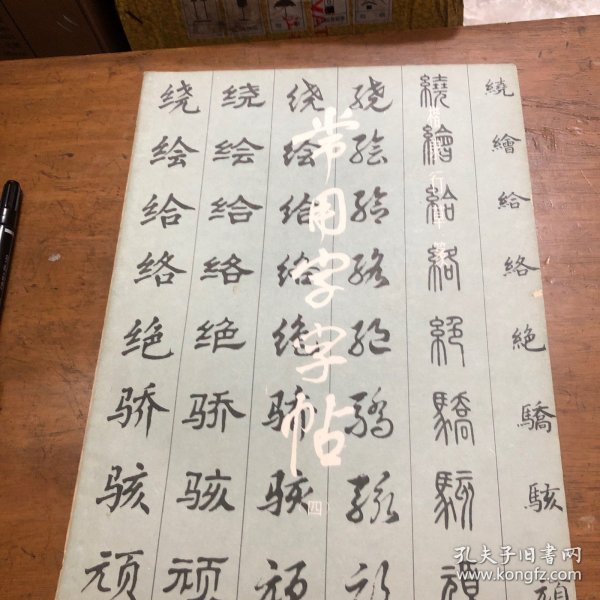 绕 绕 绕 绕 繞 繞
绘 绘 绘 绘 繪 繪
给 给 给 给 給 給
络 络 络 络 絡 絡
绝 绝 绝 绝 絕 絶
骄 骄 骄 驕 驕 驕
骇 骇 骇 骇 駭 駭
顽 顽 顽 顽 頑 頑
常用字字帖
四
孔夫子旧书网
www.kongfz.com